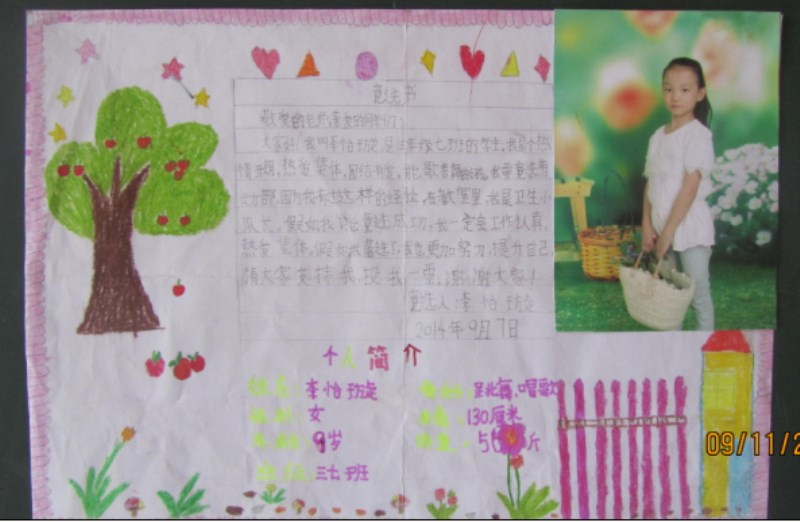 竞选书
敬爱的老师,亲爱的同学们:
大家好!我叫李怡璇,是三年级七班的学生,我是个热
情开朗,热爱集体,团结友爱,能歌善舞
动部,因为我有这样的经验,在教室里,我是卫生小
队长,假如我能竞选成功,我一定会工作认真,
热爱集体,假如我落选了,我也更加努力,提升自己,
请大家支持我,投我一票,谢谢大家!
竞选人:李怡璇
2014年9月7日
个人简介
姓名:李怡璇 跳舞、唱歌
性别:女 身高:130厘米
年龄:9岁 体重:斤
班级:三七班
09/11/2